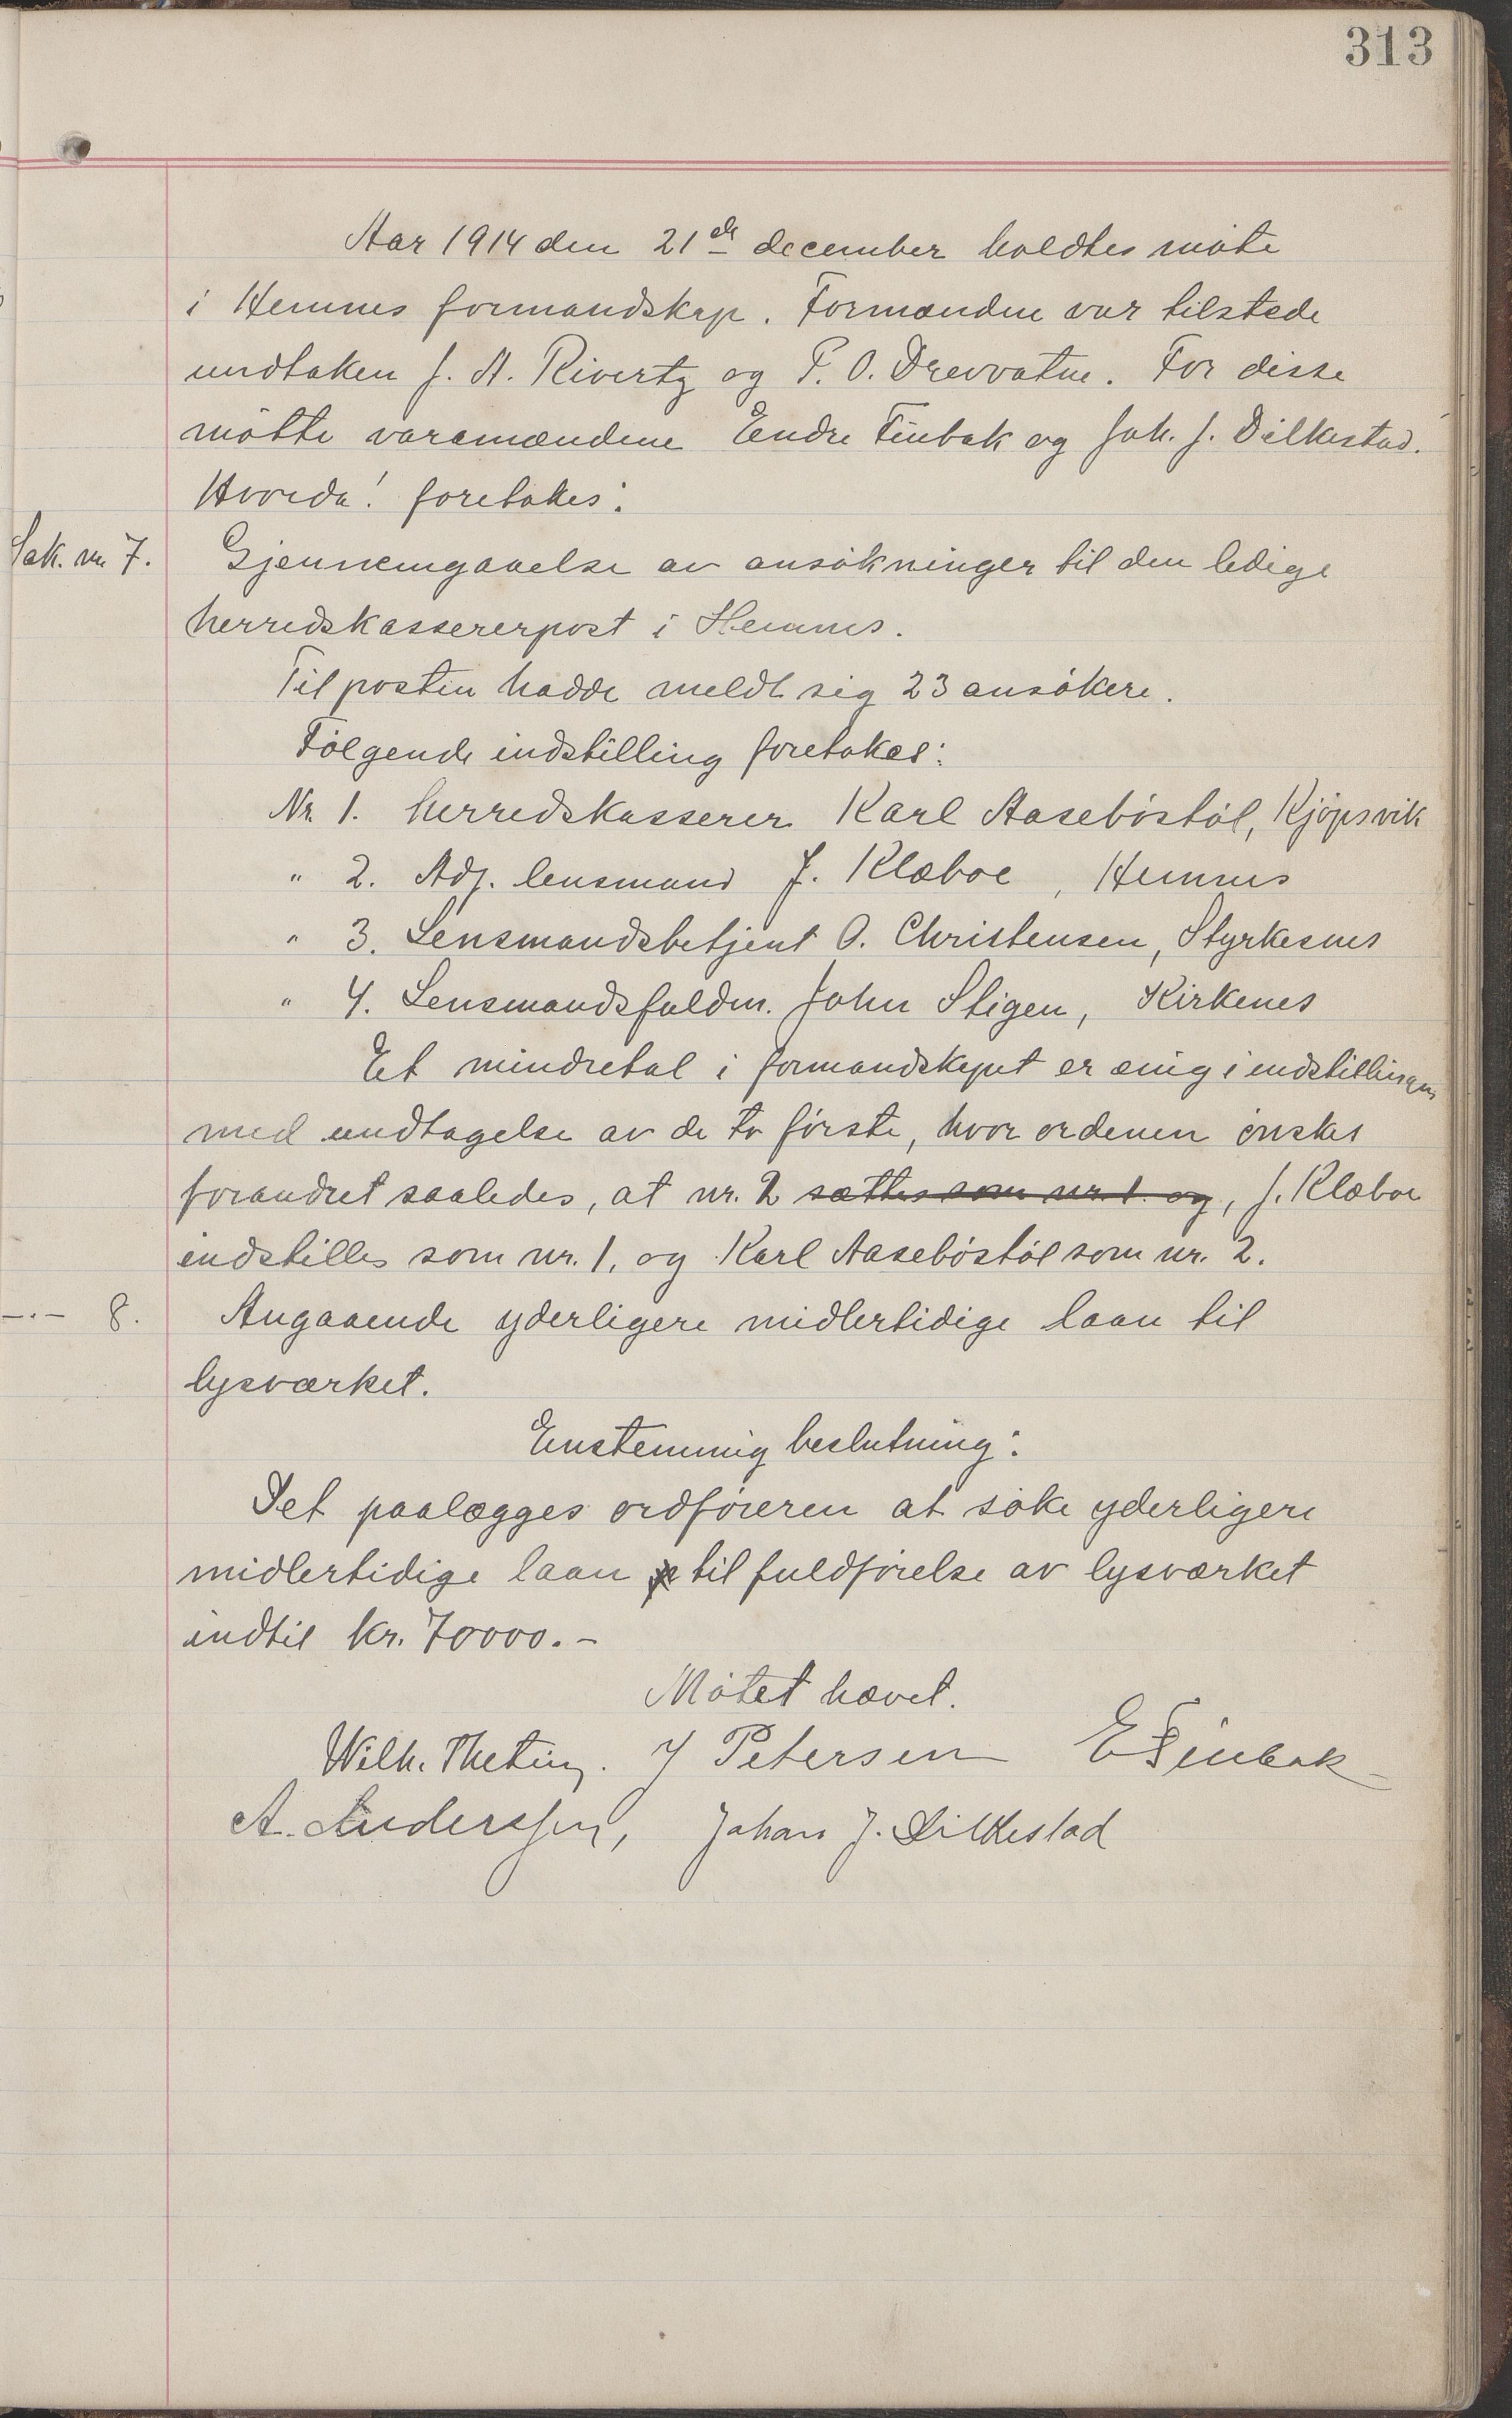 313
Aar 1914 den 21de december holdtes møte
i Hemnes formandskap. Formændene var tilstede
undtaken J. A. Rivertz og P. O. Drevvatne. For disse
møtte varamændene Endre Finbak og Joh. J. Dilkestad.
Hvorda! foretokes:
Sak. nr. 7. Gjennemgaaelse av ansøkninger til den ledige
herredskassererpost i Hemnes.
Til posten hadde meldt sig 23 ansøkere.
Følgende indstilling foretokes:
Nr. 1. herredskasserer Karl Aasebøstøl, Kjøpsvik
" 2. Adj. lensmand J. Klæboe, Hemnes
" 3. Lensmandsbetjent O. Christensen, Styrkesnes
" 4. Lensmandsfuldm. John Stigen, Kirkenes
Et mindretal i formandskapet er enig i indstillingen
med undtagelse av de to første, hvor ordenen ønskes
forandret saaledes, at nr. 2 sættes som nr. 1. og, J. Klæboe
indstilles som nr. 1, og Karl Aasebøstøl som nr. 2.
-"- 8. Angaaende yderligere midlertidige laan til
lysværket.
Enstemmig beslutning:
Det paalægges ordføreren at søke yderligere
midlertidige laan til fuldførelse av lysværket
indtil kr. 70000.-
Møtet hævet.
Wilh. Theting. J Petersen E Finbak
A. Anderssen, Johan J. Dilkestad